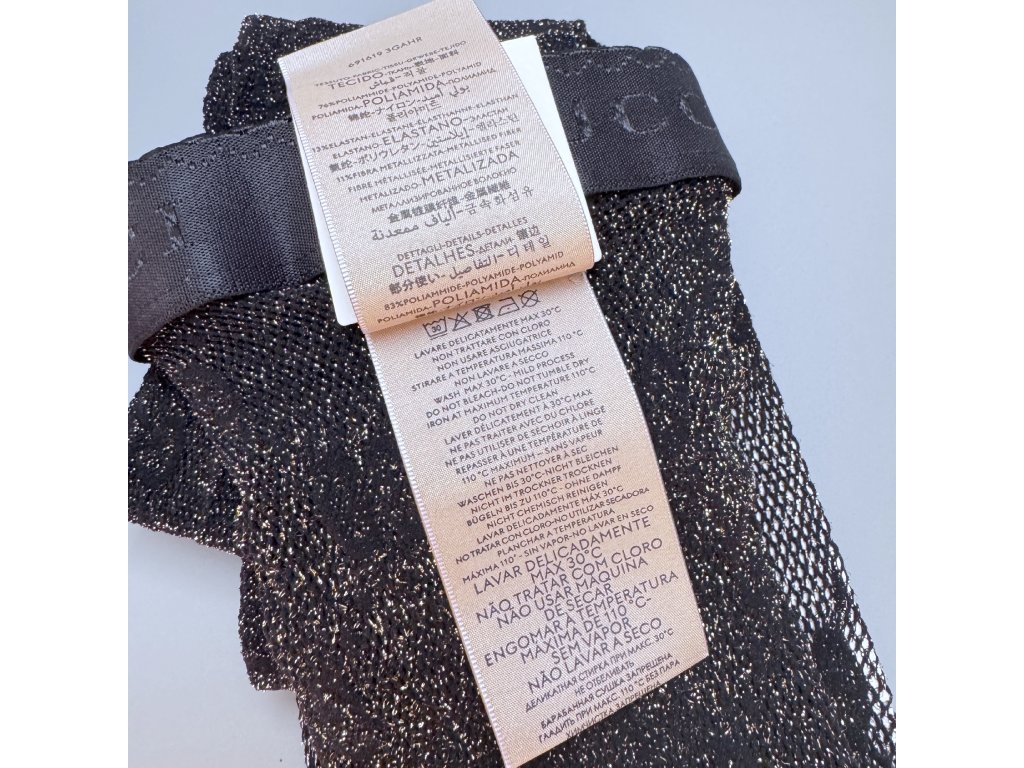 691619 3GAHR
TESSUTO-FABRIC-TISSU-GEWEBE-TEJIDO
TECIDO-ТКАНЬ-表地-面料
قماش-직물
76%POLIAMMIDE-POLYAMIDE-POLYAMID
POLIAMIDA-POLIAMIDA-ПОЛИАМИД
ナイロン
폴리아미드
13%ELASTAN-ELASTANE-ELASTHANNE-ELASTHAN
ELASTANO-ELASTANO-ЭЛАСТАН
ポリウレタン
11%FIBRA METALLIZZATA-METALLISED FIBER
FIBRE MÉTALLISÉE-METALLISIERTE FASER
METALIZADO-METALIZADA
МЕТАЛЛИЗИРОВАННОЕ ВОЛОКНО
金属被膜繊維-金属纤维
ألياف ممعدنة-금속화섬유
DETTAGLI-DETAILS-DETALLES
DETALHES-ДЕТАЛИ-镶边
部分使い-التفاصيل-디테일
83%POLIAMMIDE-POLYAMIDE-POLYAMID
POLIAMIDA-POLIAMIDA-ПОЛИАМИД
CCI
30
LAVARE DELICATAMENTE MAX 30°C
NON TRATTARE CON CLORO
NON USARE ASCIUGATRICE
STIRARE A TEMPERATURA MASSIMA 110 °C
NON LAVARE A SECCO
WASH MAX 30°C- MILD PROCESS
DO NOT BLEACH-DO NOT TUMBLE DRY
IRON AT MAXIMUM TEMPERATURE 110°C
DO NOT DRY CLEAN
LAVER DÉLICATEMENT À 30°C MAX
NE PAS TRAITER AVEC DU CHLORE
NE PAS UTILISER DE SÉCHOIR À LINGE
REPASSER À UNE TEMPÉRATURE DE
110 °C MAXIMUM – SANS VAPEUR
NE PAS NETTOYER À SEC
WASCHEN BIS 30°C-NICHT BLEICHEN
NICHT IM TROCKNER TROCKNEN
BÜGELN BIS ZU 110°C - OHNE DAMPF
NICHT CHEMISCH REINIGEN
LAVAR DELICADAMENTE MÁX 30°C
NO TRATAR CON CLORO-NO UTILIZAR SECADORA
PLANCHAR A TEMPERATURA
MÁXIMA 110° - SIN VAPOR-NO LAVAR EN SECO
LAVAR DELICADAMENTE
MÁX 30°C
NÃO TRATAR COM CLORO
NÃO USAR MÁQUINA
DE SECAR
ENGOMAR A TEMPERATURA
MÁXIMA DE 110 °C-
SEM VAPOR
NÃO LAVAR A SECO
ДЕЛИКАТНАЯ СТИРКА ПРИ МАКС. 30°C
НЕ ОТБЕЛИВАТЬ
БАРАБАННАЯ СУШКА ЗАПРЕЩЕНА
ГЛАДИТЬ ПРИ МАКС 110 °C БЕЗ ПАРА